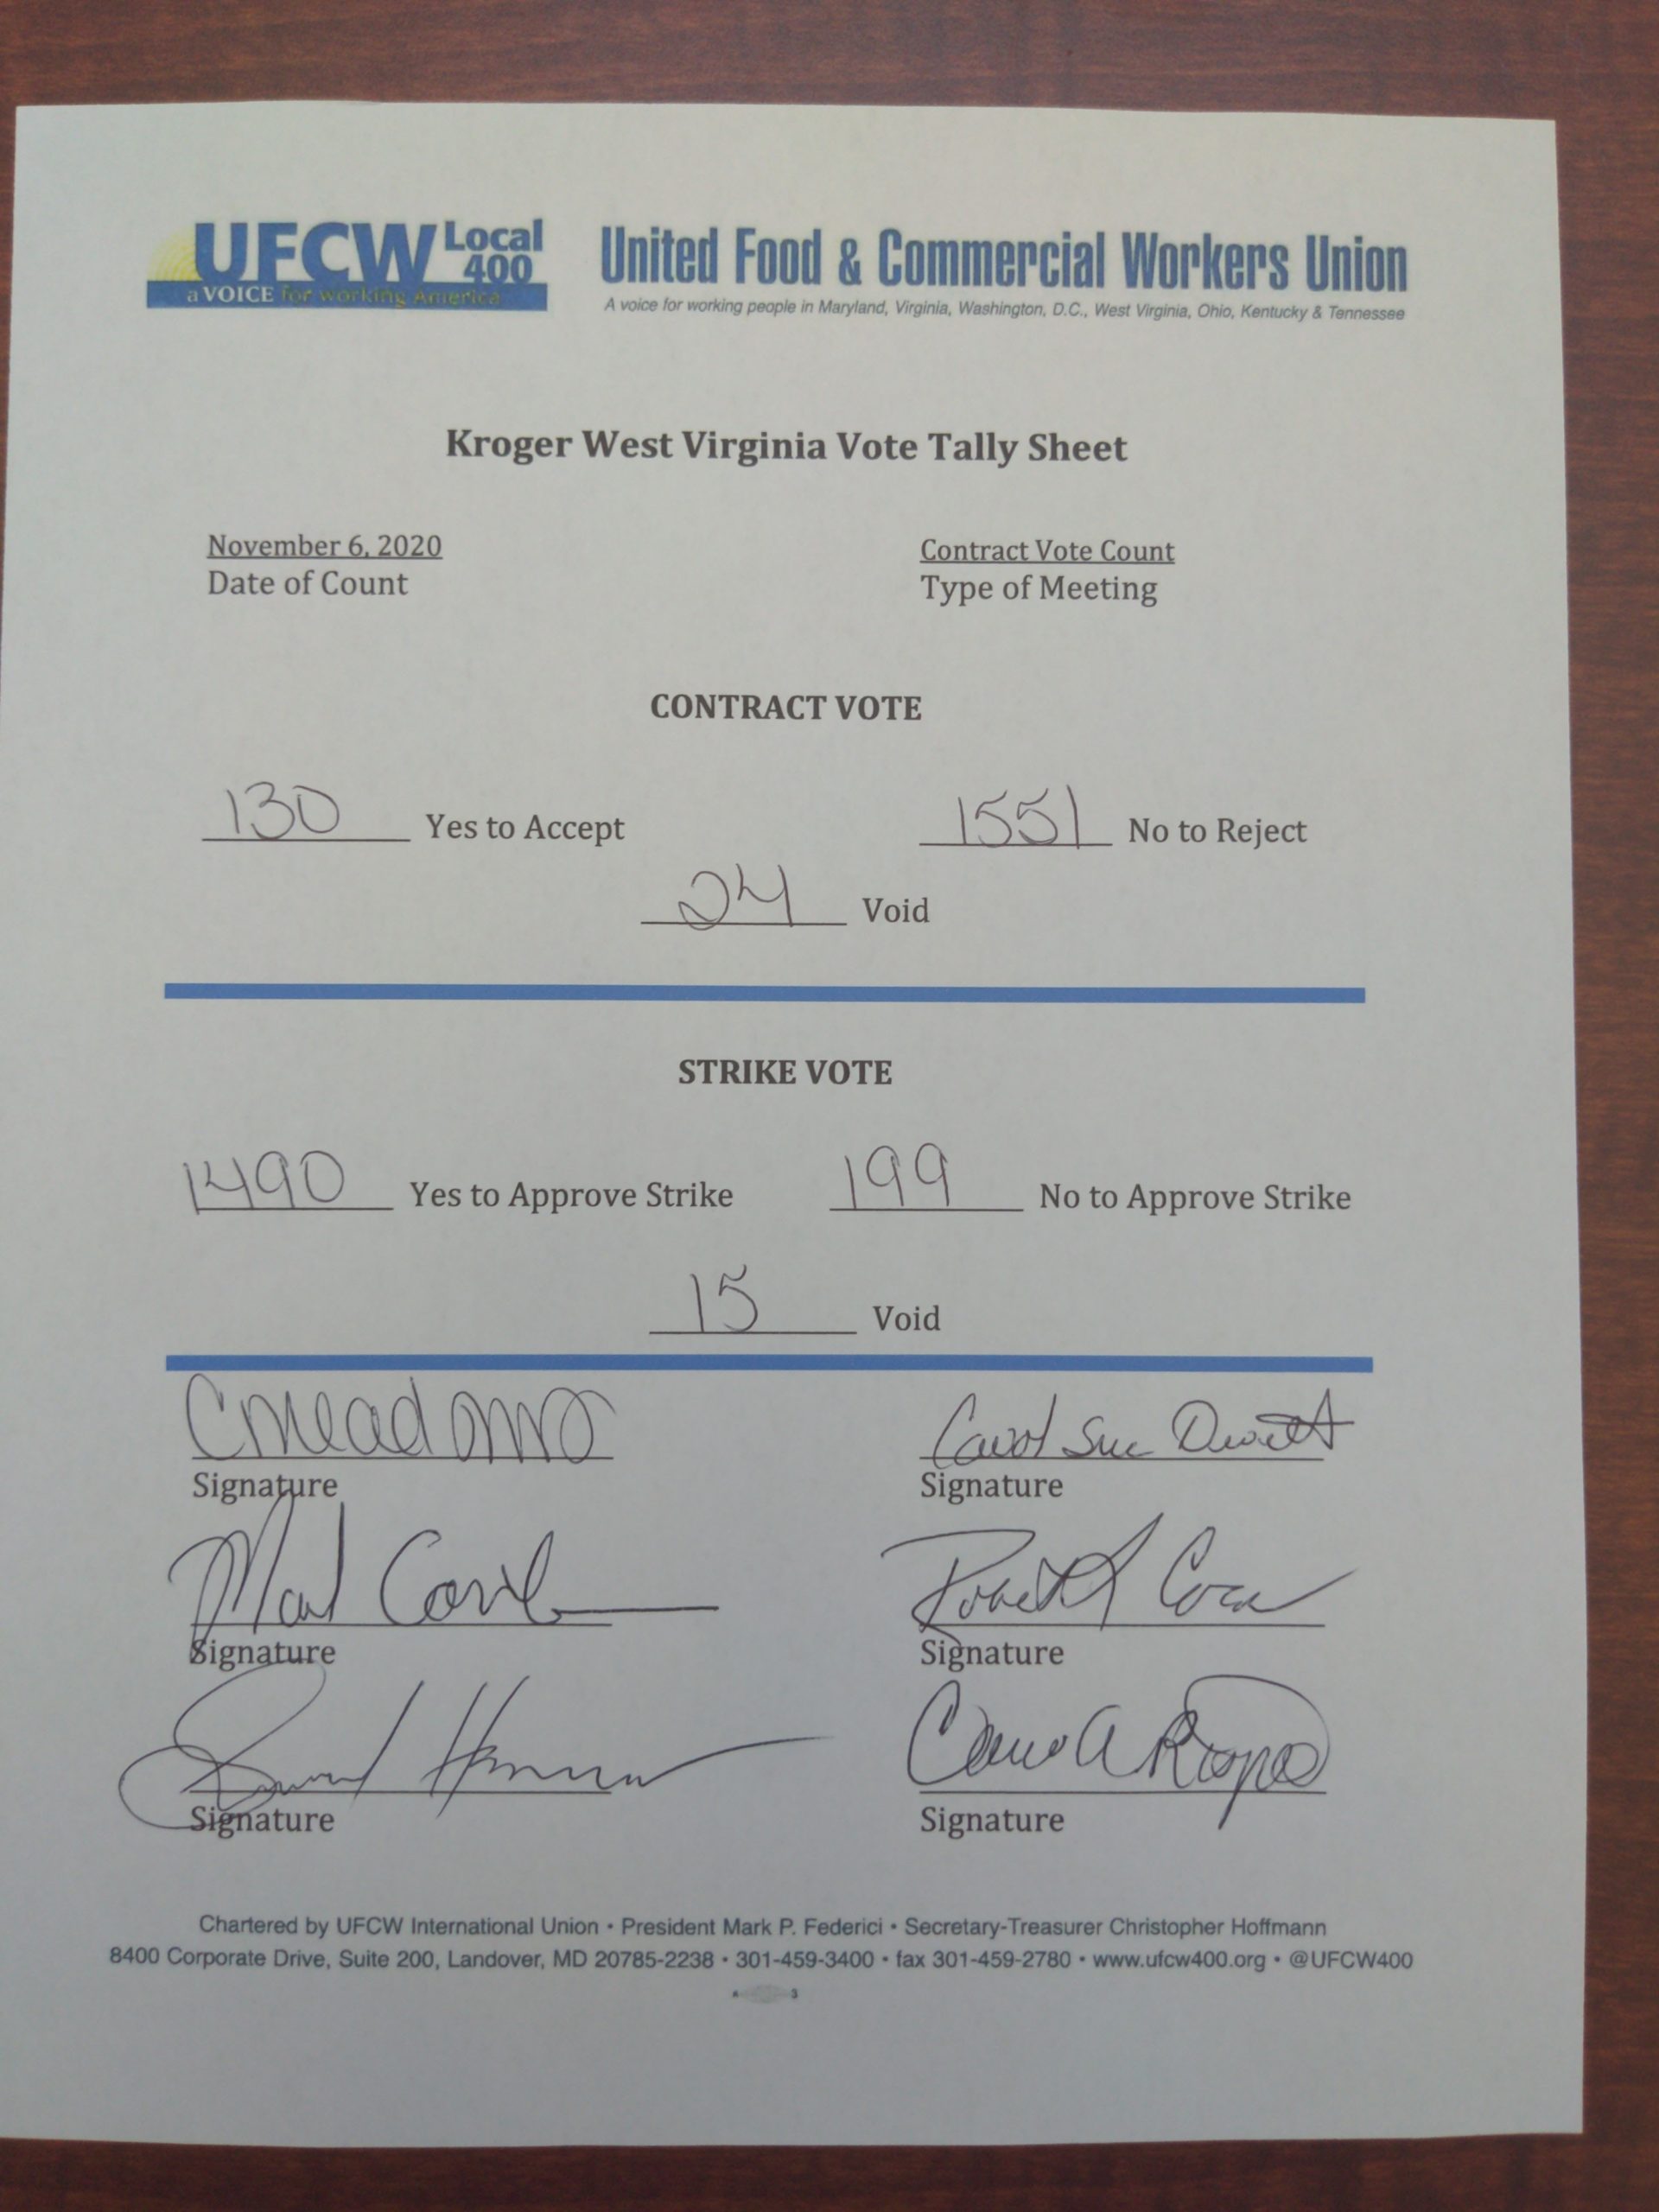 UFCW Local 400
a VOICE for working America
United Food & Commercial Workers Union
A voice for working people in Maryland, Virginia, Washington, D.C., West Virginia, Ohio, Kentucky & Tennessee
Kroger West Virginia Vote Tally Sheet
November 6, 2020 Contract Vote Count
Date of Count Type of Meeting
CONTRACT VOTE
130 Yes to Accept 1551 No to Reject
24 Void
STRIKE VOTE
1490 Yes to Approve Strike 199 No to Approve Strike
15 Void
CMeadows Carol Sue
Signature Signature
Signature Signature
Signature Signature
Chartered by UFCW International Union • President Mark P. Federici • Secretary-Treasurer Christopher Hoffmann
8400 Corporate Drive, Suite 200, Landover, MD 20785-2238 • 301-459-3400 • fax 301-459-2780 • www.ufcw400.org • @UFCW400